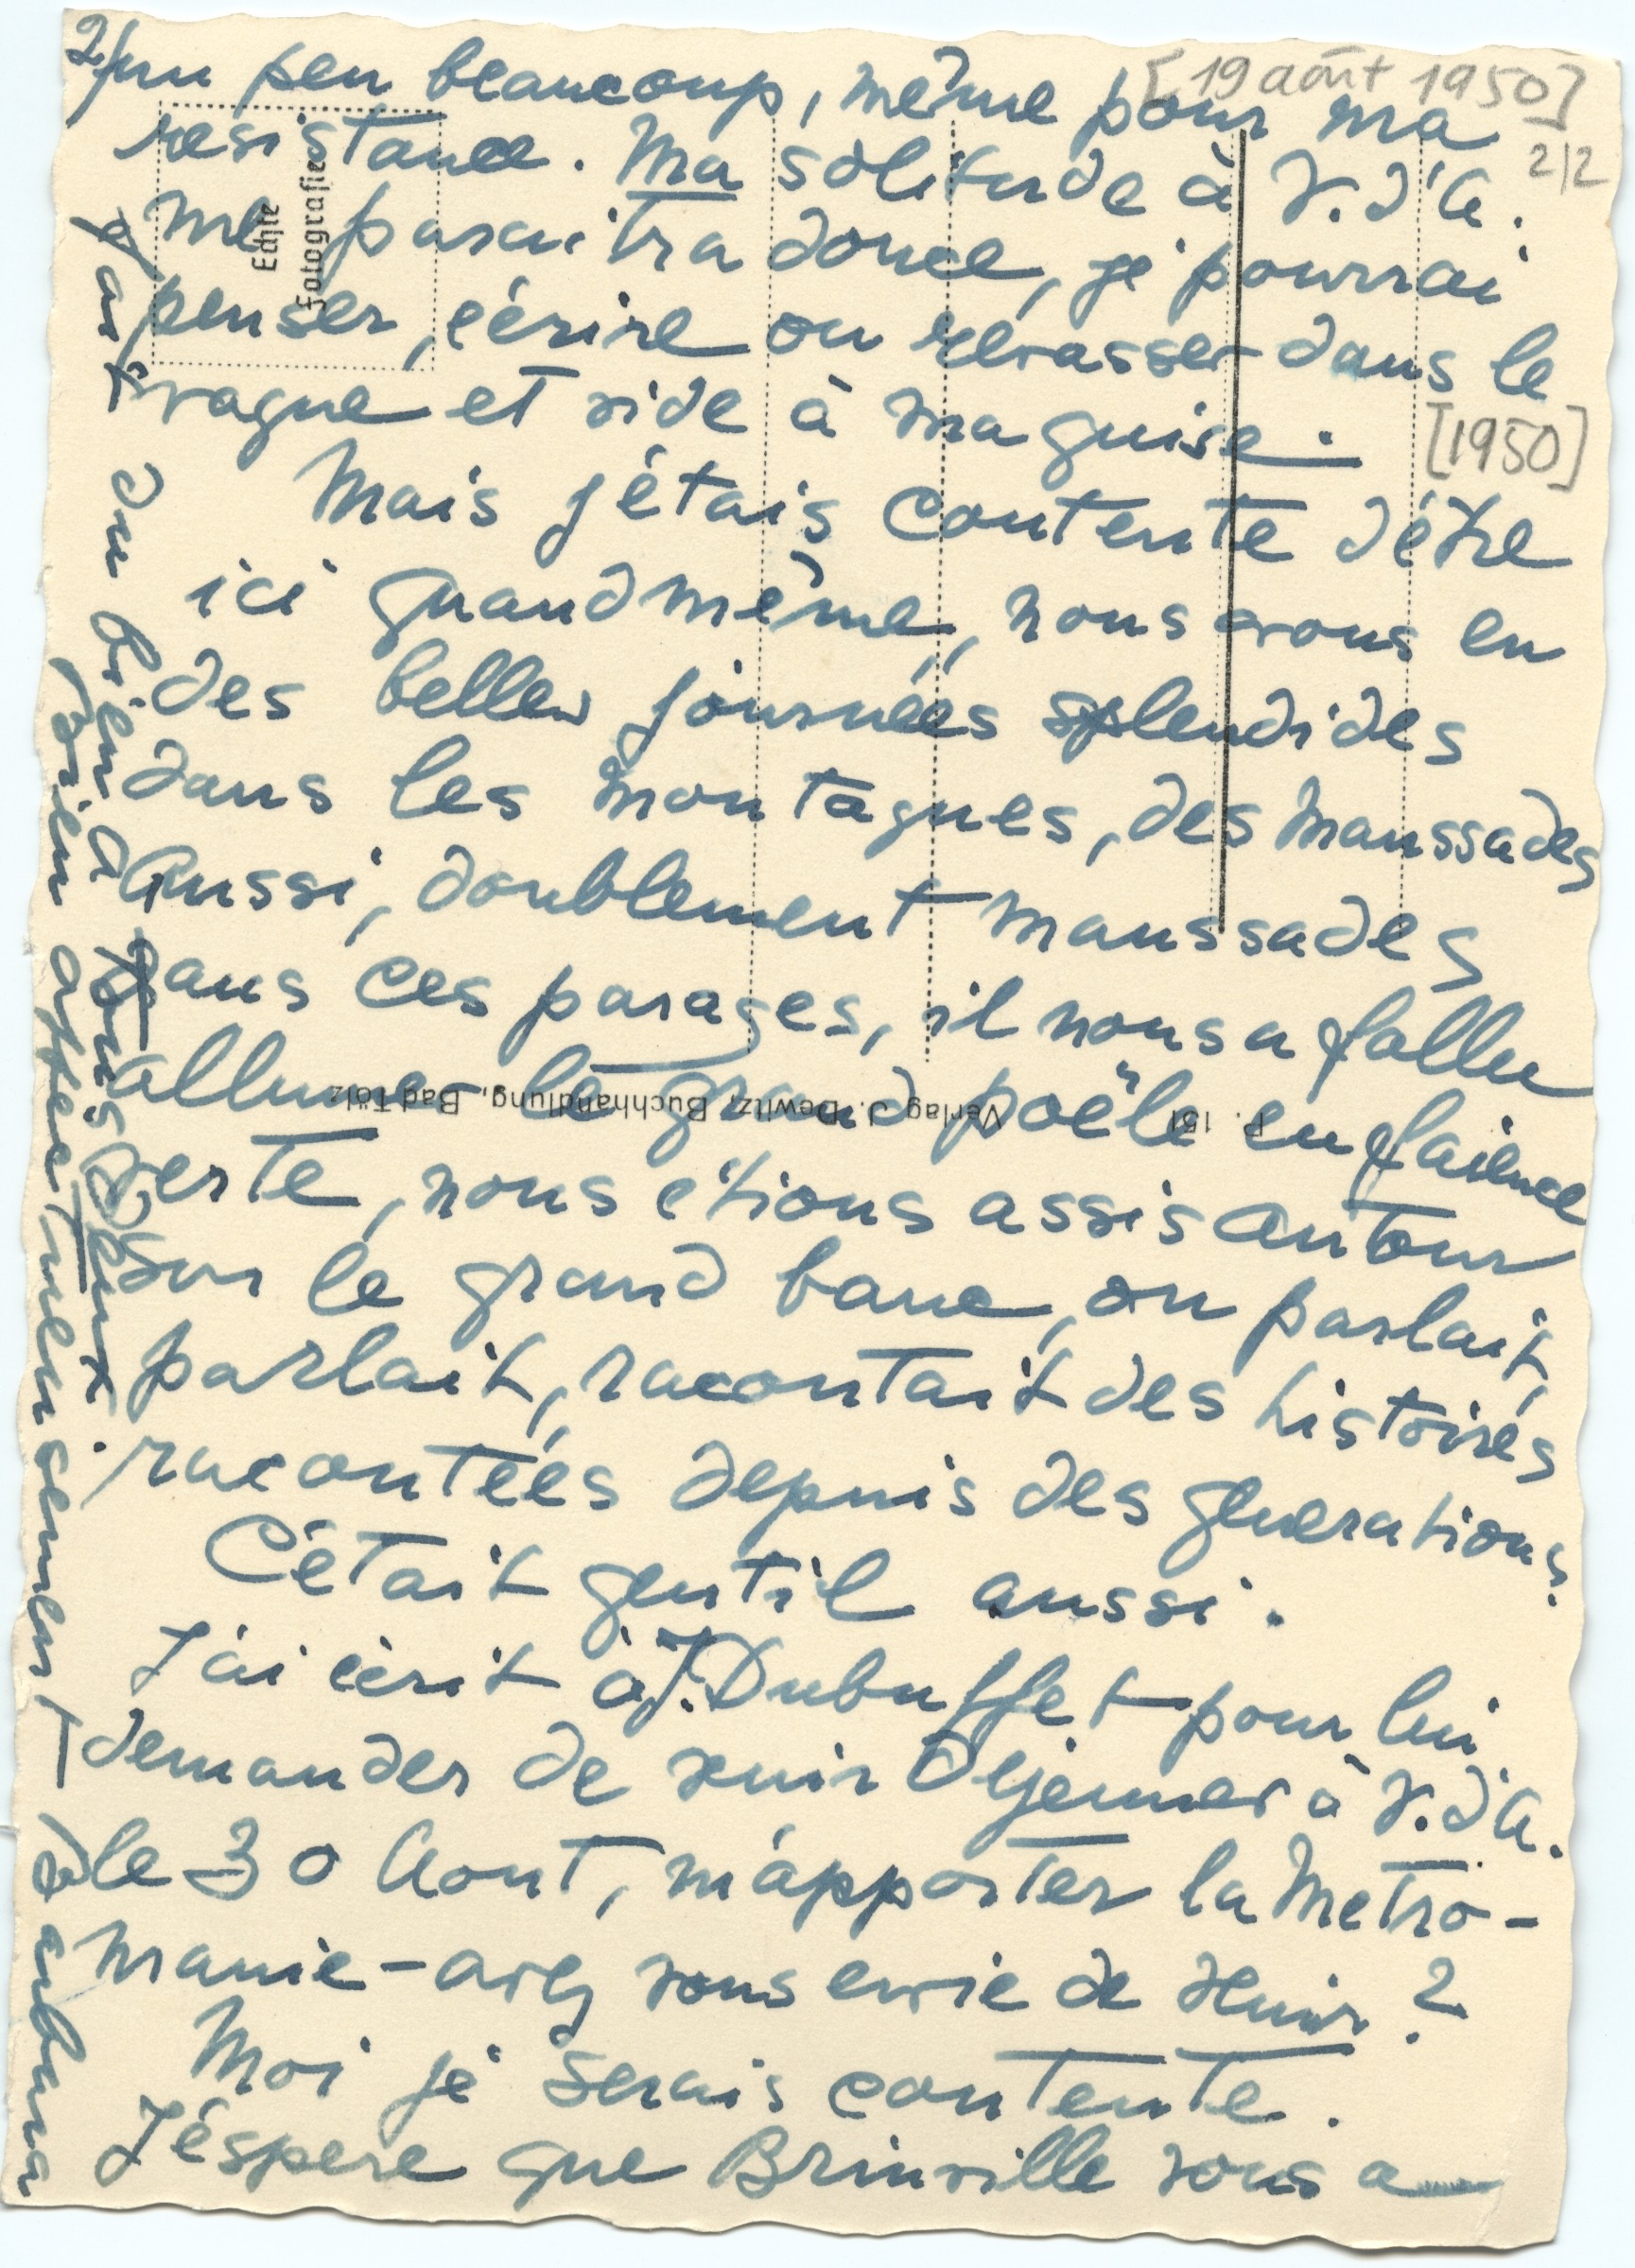 2/ un peu beaucoup, même pour ma
[19 août 1950]
2/2
resistance. Ma solitude à V.d'A.
me paraitra douce, je pourrai
penser, écrire ou rêvasser dans le
vague et vide à ma guise.
[1950]
Mais j'étais contente d'être
ici quand même, nous avons eu
des belles journées splendides
dans les montagnes, des maussades
Aussi, doublement maussades
dans ces parages, il nous a fallu
allumer le grand poële en faience
verte, nous etions assis autour
sur le grand banc, on parlait,
parlait, racontait des histoires
racontées depuis des generations.
C'était gentil aussi.
J'ai écrit à J. Dubuffet pour lui
demander de venir dejeuner à V.d'A.
le 30 Aout, m'apporter la Metro-
manie - avez vous envie de venir ?
Moi je serais contente.
J'éspere que Brinville vous a
fait du bien à tous deux.
bien affectueusement
Barbara
Echte
Fotografie
P. 151 Verlag J. Dewitz, Buchhandlung, Bad Tölz